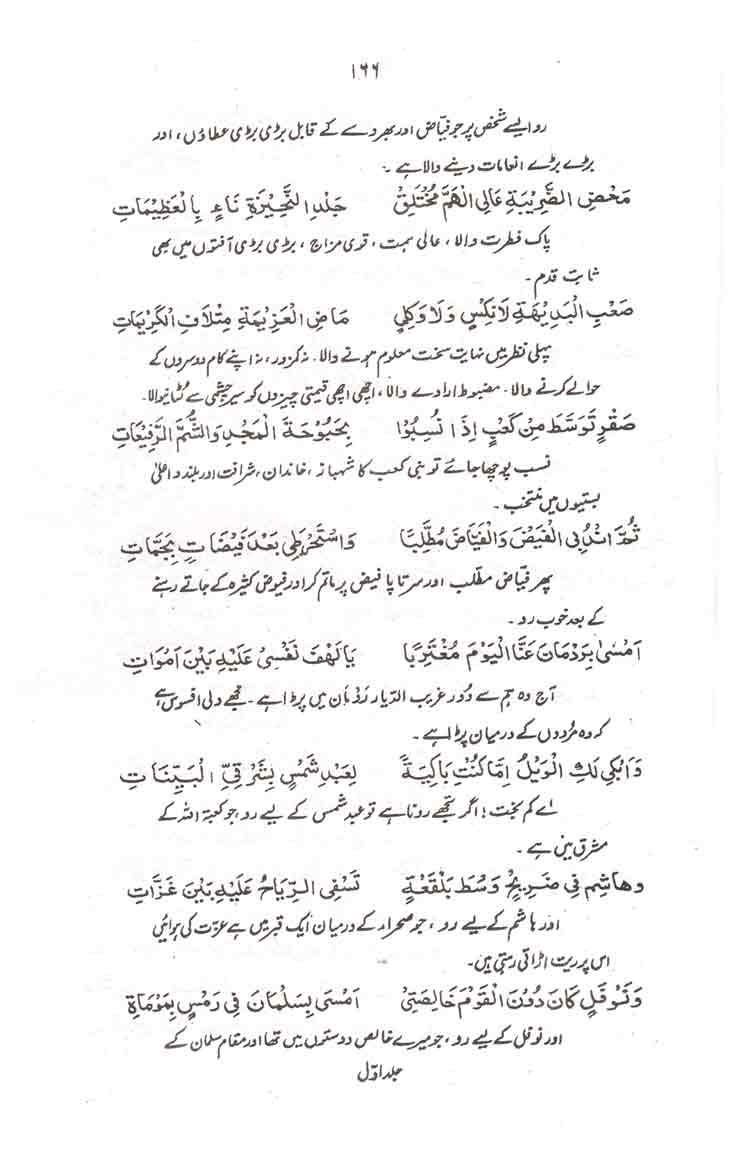 ۱۶۶
رو ایسے شخص پر جو فیّاض اور بھروسے کے قابل بڑی بڑی عطاؤں، اور
بڑے بڑے انعامات دینے والا ہے ۔
مَحْضِ الضَّرِيْبَةِ عَالِی الْهَمِّ مُخْتَلِقٌ جَلْدِ النَّحِيْزَةِ نَاءٍ بِالْعَظِيْمَاتِ
پاک فطرت والا، عالی ہمت، قوی مزاج، بڑی بڑی آفتوں میں بھی
ثابت قدم ۔
صَعْبِ الْبَدِيْهَةِ لَا نِكْسٍ وَلَا وَكِلٍ مَاضِ الْعَزِيْمَةِ مِتْلَافِ الْكَرِيْمَاتِ
پہلی نظر میں نہایت سخت معلوم ہونے والا۔ نہ کمزور، نہ اپنے کام دوسروں کے
حوالے کرنے والا۔ مضبوط ارادے والا، اچھی اچھی قیمتی چیزوں کو سیر چشمی سے لٹانیوالا۔
صَقْرٍ تَوَسَّطَ مِنْ كَعْبٍ إِذَا نُسِبُوْا بِحُبُوْحَةَ الْمَجْدِ وَالشُّمِّ الرَّفِيْعَاتِ
نسب پوچھا جائے تو بنی کعب کا شہباز، خاندان، شرافت اور بلند و اعلیٰ
ہستیوں میں منتخب۔
ثُمَّ انْدُبِی الْفَيْضَ وَالْفَيَّاضَ مُطَّلِبًا وَاسْتَخْرِطِیْ بَعْدَ فَيْضَاتٍ بِجَمَّاتِ
پھر فیّاض مطلب اور سرتا پا فیض پر ماتم کر اور فیوض کثیرہ کے جاتے رہنے
کے بعد خوب رو ۔
اَمْسٰی بِرَدْمَانَ عَنَّا الْيَوْمَ مُغْتَرِبًا يَا لَهْفَ نَفْسِیْ عَلَيْهِ بَيْنَ اَمْوَاتِ
آج وہ ہم سے دُور غریب الدیار رَدْمَان میں پڑا ہے ۔ مجھے دلی افسوس ہے
کہ وہ مُردوں کے درمیان پڑا ہے ۔
وَابْكِی لَكِ الْوَيْلُ اِمَّا كُنْتِ بَاكِيَةً لِعَبْدِ شَمْسٍ بِشَرْقِیِّ الْبَيِّنَاتِ
اے کم بخت! اگر تجھے رونا ہے تو عبد شمس کے لیے رو، جو کعبۃ اللہ کے
مشرق میں ہے ۔
وَهَاشِمٍ فِی ضَرِيْحٍ وَسْطَ بَلْقَعَةٍ تَسْفِی الرِّيَاحُ عَلَيْهِ بَيْنَ غَزَّاتِ
اور ہاشم کے لیے رو، جو صحرا کے درمیان ایک قبر میں ہے غزّت کی ہوائیں
اس پر ریت اڑاتی رہتی ہیں۔
وَنَوْفَلٍ كَانَ دُوْنَ الْقَوْمِ خَالِصَتِیْ اَمْسٰی بِسَلْمَانَ فِی رَمْسٍ بِمَوْمَاةِ
اور نوفل کے لیے رو، جو میرے خالص دوستوں میں تھا اور مقام سلمان کے
جلد اوّل